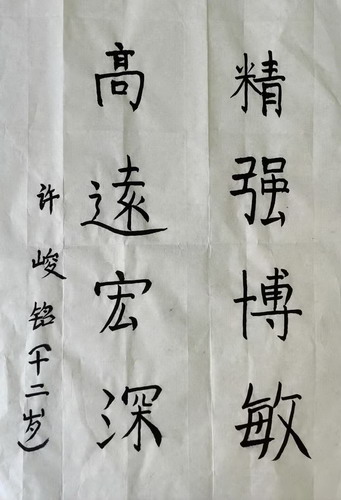 精强博敏
高遠宏深
许峻铭(十二岁)